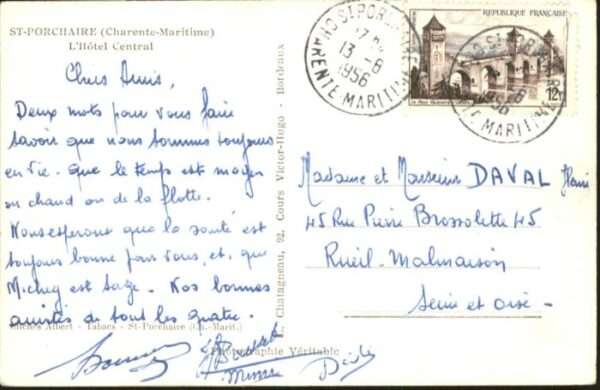 ST-PORCHAIRE (Charente-Maritime)
L'Hôtel Central
Chers Amis,
Deux mots pour vous faire
savoir que nous sommes toujours
en vie. que le temps est moyen
ou chaud ou de la flotte.
Nous esperont que la santé est
toujours bonne pour vous, et, que
Michey est sage. Nos bonnes
amitiés de tout les quatre.
Clichés Albert - Tabacs - St-Porchaire (Ch.-Marit.)
Photographie Véritable
Chatagneau, 92, Cours Victor-Hugo - Bordeaux
ST PORCHAIRE
CHARENTE-MARITIME
13-6
1956
REPUBLIQUE FRANÇAISE
12F
Madame et Monsieur DAVAL Henri
45 Rue Pierre Brossolette 45
Rueil-Malmaison
Seine et oise.